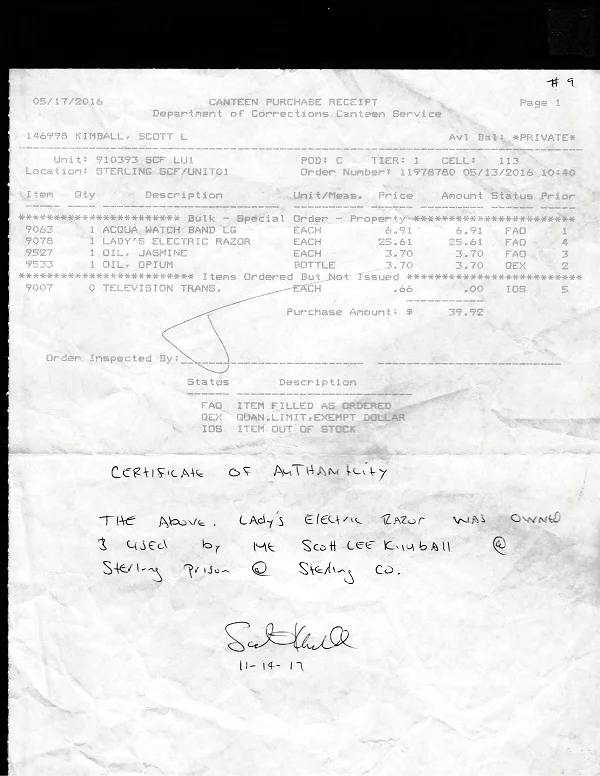 # 9
05/17/2016 CANTEEN PURCHASE RECEIPT Page 1
Department of Corrections Canteen Service
146998 KIMBALL, SCOTT L Avl Bal: *PRIVATE*
Unit: 910393 SCF LU1 POD: C TIER: 1 CELL: 113
Location: STERLING SCF/UNIT01 Order Number: 11978780 05/13/2016 10:40
Item Qty Description Unit/Meas. Price Amount Status Prior
*********************** Bulk - Special Order - Property ***********************
9063 1 ACQUA WATCH BAND LG EACH 6.91 6.91 FAO 1
9078 1 LADY'S ELECTRIC RAZOR EACH 25.61 25.61 FAO 4
9527 1 OIL, JASMINE EACH 3.70 3.70 FAO 3
9533 1 OIL, OPIUM BOTTLE 3.70 3.70 QEX 2
************************* Items Ordered But Not Issued *************************
9007 0 TELEVISION TRANS. EACH .66 .00 IOS 5
Purchase Amount: $ 39.92
Order Inspected By:
Status Description
FAO ITEM FILLED AS ORDERED
QEX QUAN.LIMIT.EXEMPT DOLLAR
IOS ITEM OUT OF STOCK
CERTIFICATE OF AUTHANTICITY
THE Above. LAdy's ElEctric RAZOR WAS OWNED
& used by ME Scott LEE Kimball @
Sterling Prison @ Sterling CO.
Scott Kimball
11-14-17